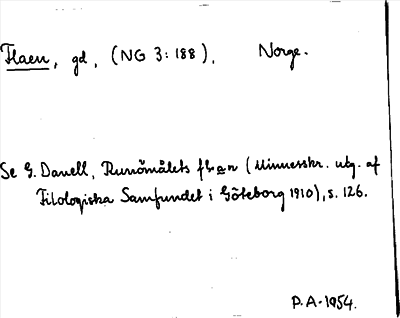 Flaen, gd, (NG 3:188), Norge.
Se G. Danell, Runömålets flan (Minnesskr. utg. af
Filologiska Samfundet i Göteborg 1910), s. 126.
P.A. 1954.